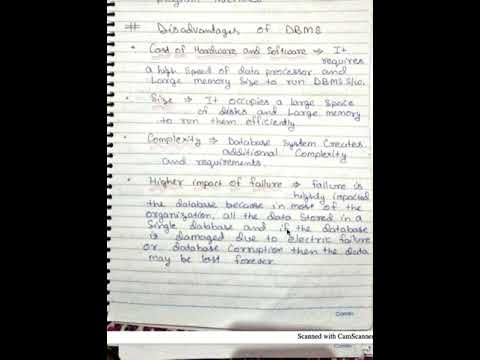 # Disadvantages of DBMS
• Cost of Hardware and Software ⇒ It
requires
a high speed of data processor and
Large memory Size to run DBMS S/w.
• Size ⇒ It occupies a large Space
of disks and Large memory
to run them efficiently
• Complexity ⇒ Database System Creates
additional Complexity
and requirements.
• Higher impact of failure ⇒ failure is
highly impacted
the database because in most of the
organization, all the data Stored in a
Single database and if the database
is damaged due to electric failure
or database Corruption then the data
may be lost forever
Camlin
Scanned with CamScanner
Camlin